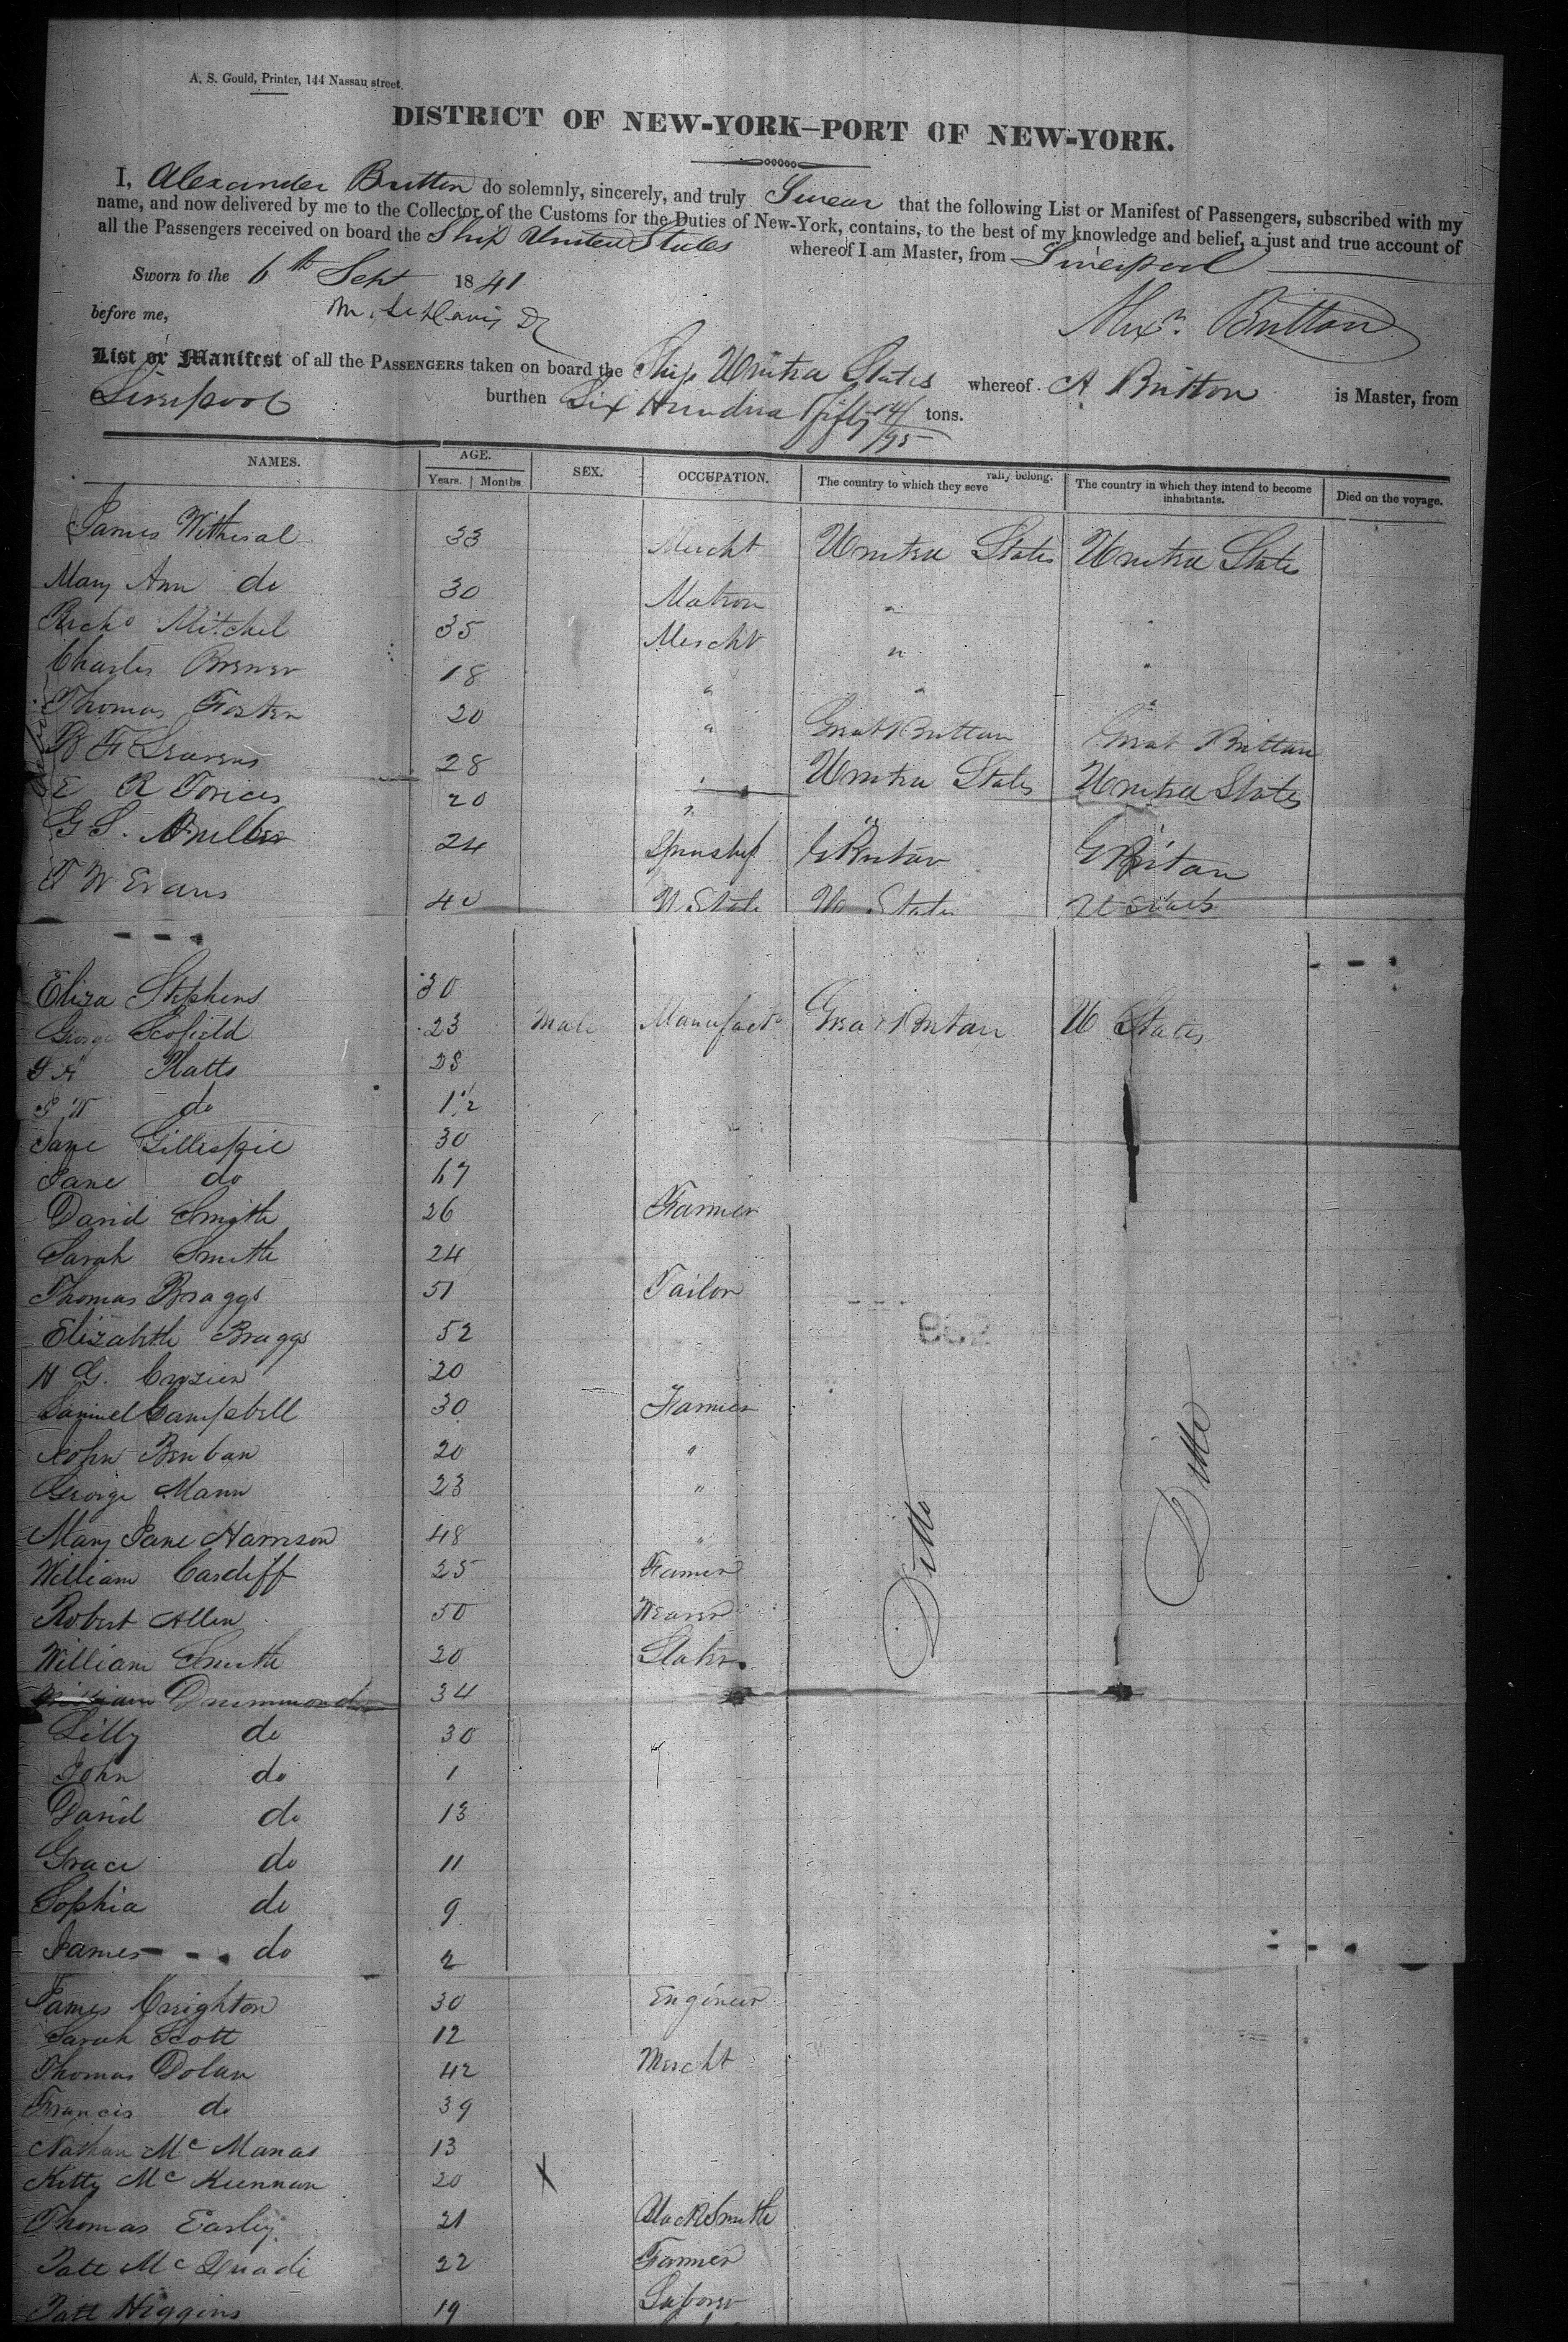 A. S. Gould, Printer, 144 Nassau street.
DISTRICT OF NEW-YORK—PORT OF NEW-YORK.
I, Alexander Britton do solemnly, sincerely, and truly Swear that the following List or Manifest of Passengers, subscribed with my
name, and now delivered by me to the Collector of the Customs for the Duties of New-York, contains, to the best of my knowledge and belief, a just and true account of
all the Passengers received on board the Ship United States whereof I am Master, from Liverpool
Sworn to the 6th Sept 1841
before me, Alexr. Britton
List or Manifest of all the PASSENGERS taken on board the Ship United States whereof A Britton is Master, from
Liverpool burthen Six Hundred fifty 14/95 tons.
NAMES. AGE. Years. Months SEX. OCCUPATION. The country to which they severally belong. The country in which they intend to become inhabitants. Died on the voyage.
James Witheral 33 Mercht United States United States
Mary Ann do 30 Matron " "
Richd Mitchel 35 Mercht " "
Charles 18 " " "
Thomas Foster 20 " Great Brittan Great Brittan
28 " United States United States
E R 20 "
G S. 24 G Britan G Britan
T W Evans 40 U State U States U States
Eliza Stephens 30
George Scofield 23 Male Manufactr Great Britan U States
Platts 28
do 1 1/2
Jane Gillespie 30
Jane do 67
David Smith 26 Farmer
Sarah Smith 24
Thomas Braggs 51 Tailor
Elizabeth Braggs 52
H G. Crozier 20
Samuel Campbell 30 Farmer
John 20 "
George Mann 23 "
Mary Jane Harrison 48 "
William Cardiff 25 Farmer
Robert Allen 50 Weaver
William Smith 20 Slater
William Drummond 34
Lilly do 30
John do 1
David do 13
Grace do 11
Sophia do 9
James do 2
Ditto Ditto
James Creighton 30 Engineer
Sarah Scott 12
Thomas Dolan 42 Mercht
Francis do 39
Nathan Mc Manas 13
Kitty Mc Kunnan 20 X
Thomas Early 21 BlackSmith
Patt Mc Quade 22 Farmer
Patt Higgins 19 Laborer